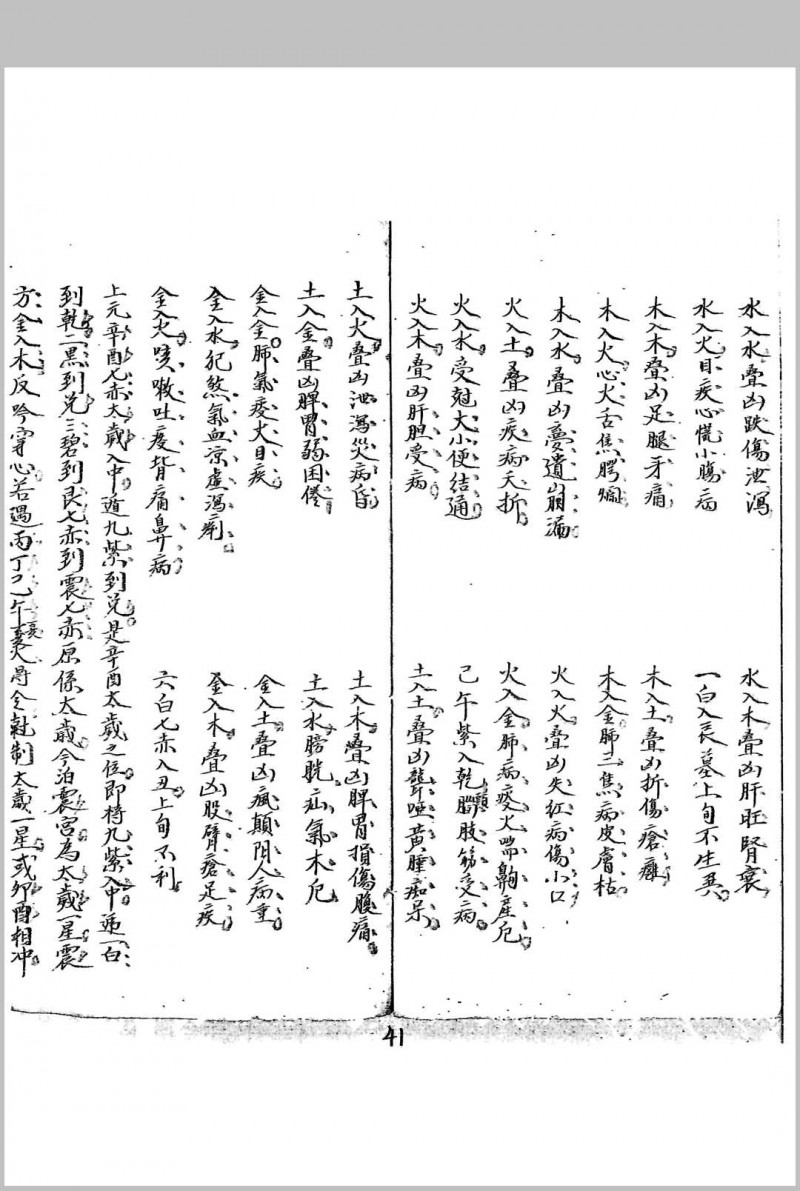 水入水叠凶跌傷泄瀉
水入木叠凶肝旺腎衰
水入火目疾心慌小腸病
一白入艮墓上旬不生異
木入木叠凶足腿牙痛
木入土叠凶折傷瘡癱
木入火心火舌焦腭爛
木入金肺三焦病皮膚枯
木入水叠凶憂遺崩漏
火入火叠凶失紅病傷小口
火入土叠凶疾病夭折
火入金肺病痰火喘齁產厄
火入水受尅大小便結通
己午紫入乾腦頭肢筋受病
火入木叠凶肝胆受病
土入土叠凶聾啞黃腫痴呆
土入火叠凶泄瀉災病昏
土入木叠凶脾胃損傷腹痛
土入金叠凶脾胃弱困倦
土入水膀胱疝氣木厄
金入金肺氣痰火目疾
金入土叠凶瘋顛陰人病重
金入水犯煞氣血凉虛瀉痢
金入木叠凶股臂瘡足疾
金入火咳嗽吐痰背痛鼻病
六白七赤入丑上旬不利
上元辛酉七赤太歲入中遁九紫到兌是辛酉太歲之位即将九紫入中逓一白
到乾二黑到兌三碧到艮七赤到震七赤原係太歲今泊震宮為太歲一星震
方金入木反吟穿心若遇丙丁己午火得令尅制太歲一星或卯酉相冲
41